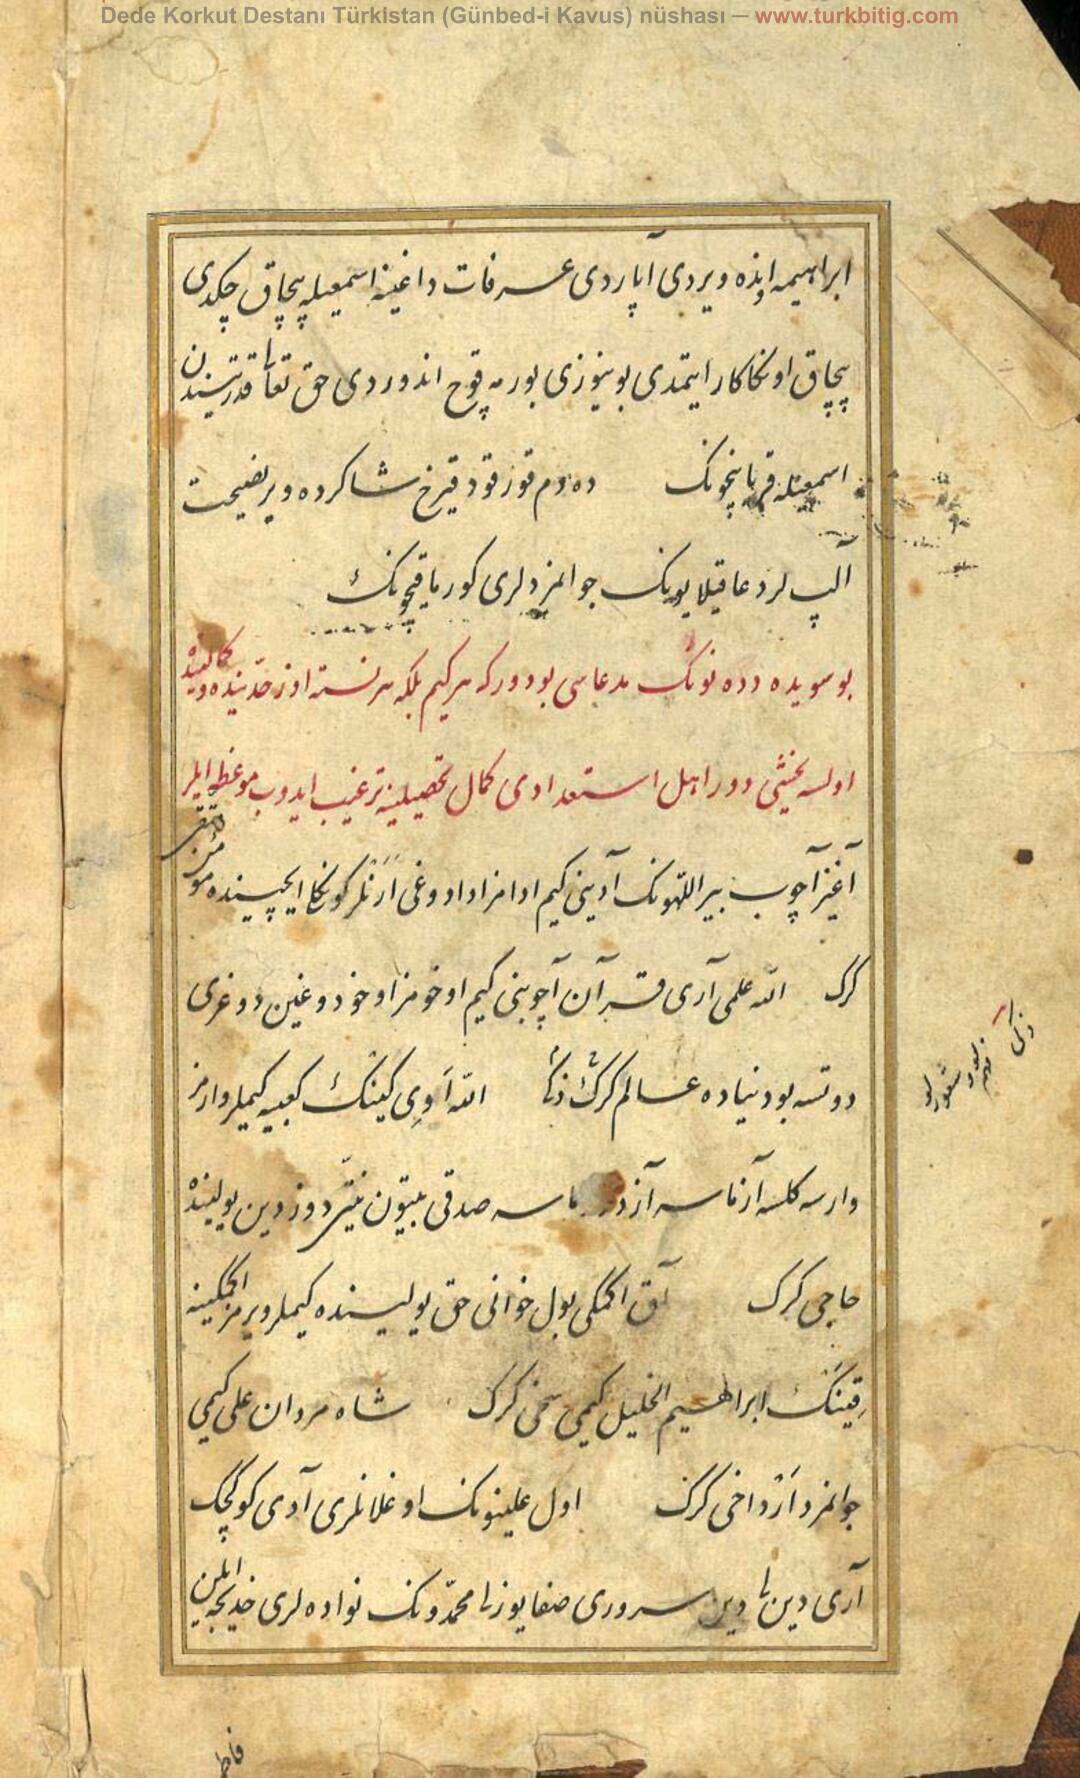 Dede Korkut Destanı Türkistan (Günbed-i Kavus) nüshası — www.turkbitig.com
ابراهیمه ایذه ویردی آپاردی عرفات داغینه اسمعیله پچاق چکدی
پچاق اونکا کار ایتمدی بوینوزی بورمه قوچ اندوردی حق تعالی قدرتیندن
اسمعیله قربانچونک ده ده م قورقود قیرخ شاکرده ویر نصیحت
آلپ لر دعا قیلا یونک جوانمزد لری کور یا قیچونک
بو سویده دده نونک مدعاسی بودور که هر کیم بلکه هر نسته اوز حدینده و کمالینده
اولسه یخشی دور اهل استعدادی کمال تحصیلینه ترغیب ایدوب موعظه ایلر
آغیز آچوب بیر اللهونک آدینی کیم ادامز اداد وغی ارنلر کونکا ایچینده مؤمن متقی
کرک الله علمی آری قرآن آچوبنی کیم اوخومز اوخودوغین دوغری
دوتسه بو دنیاده عالم کرک الله اوی کینک کعبیه کیملر وارمز
وارسه کلسه آزماسه صدقی بتون نیتی دوز دین یولینده
حاجی کرک آق اکمکی بول خوانی حق یولینده کیملر ویرمز اکمکینه
قینک ابراهیم الخلیل کیمی سخی کرک شاه مردان علی کیمی
جوانمزد ارد اخی کرک اول علینونک اوغلانلری آدی کوکچک
آری دین دین سروری صفا یوزلی محمدونک نواده لری خدیجه ایلن
فاطمه